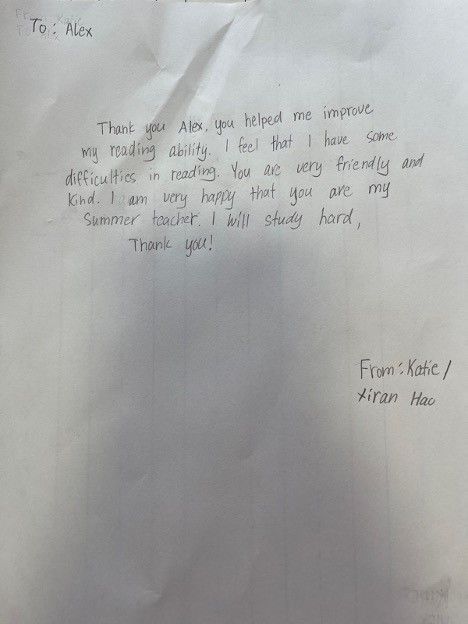 To: Alex
Thank you Alex, you helped me improve
my reading ability. I feel that I have some
difficulties in reading. You are very friendly and
kind. I am very happy that you are my
Summer teacher. I will study hard,
Thank you!
From: Katie /
Xiran Hao